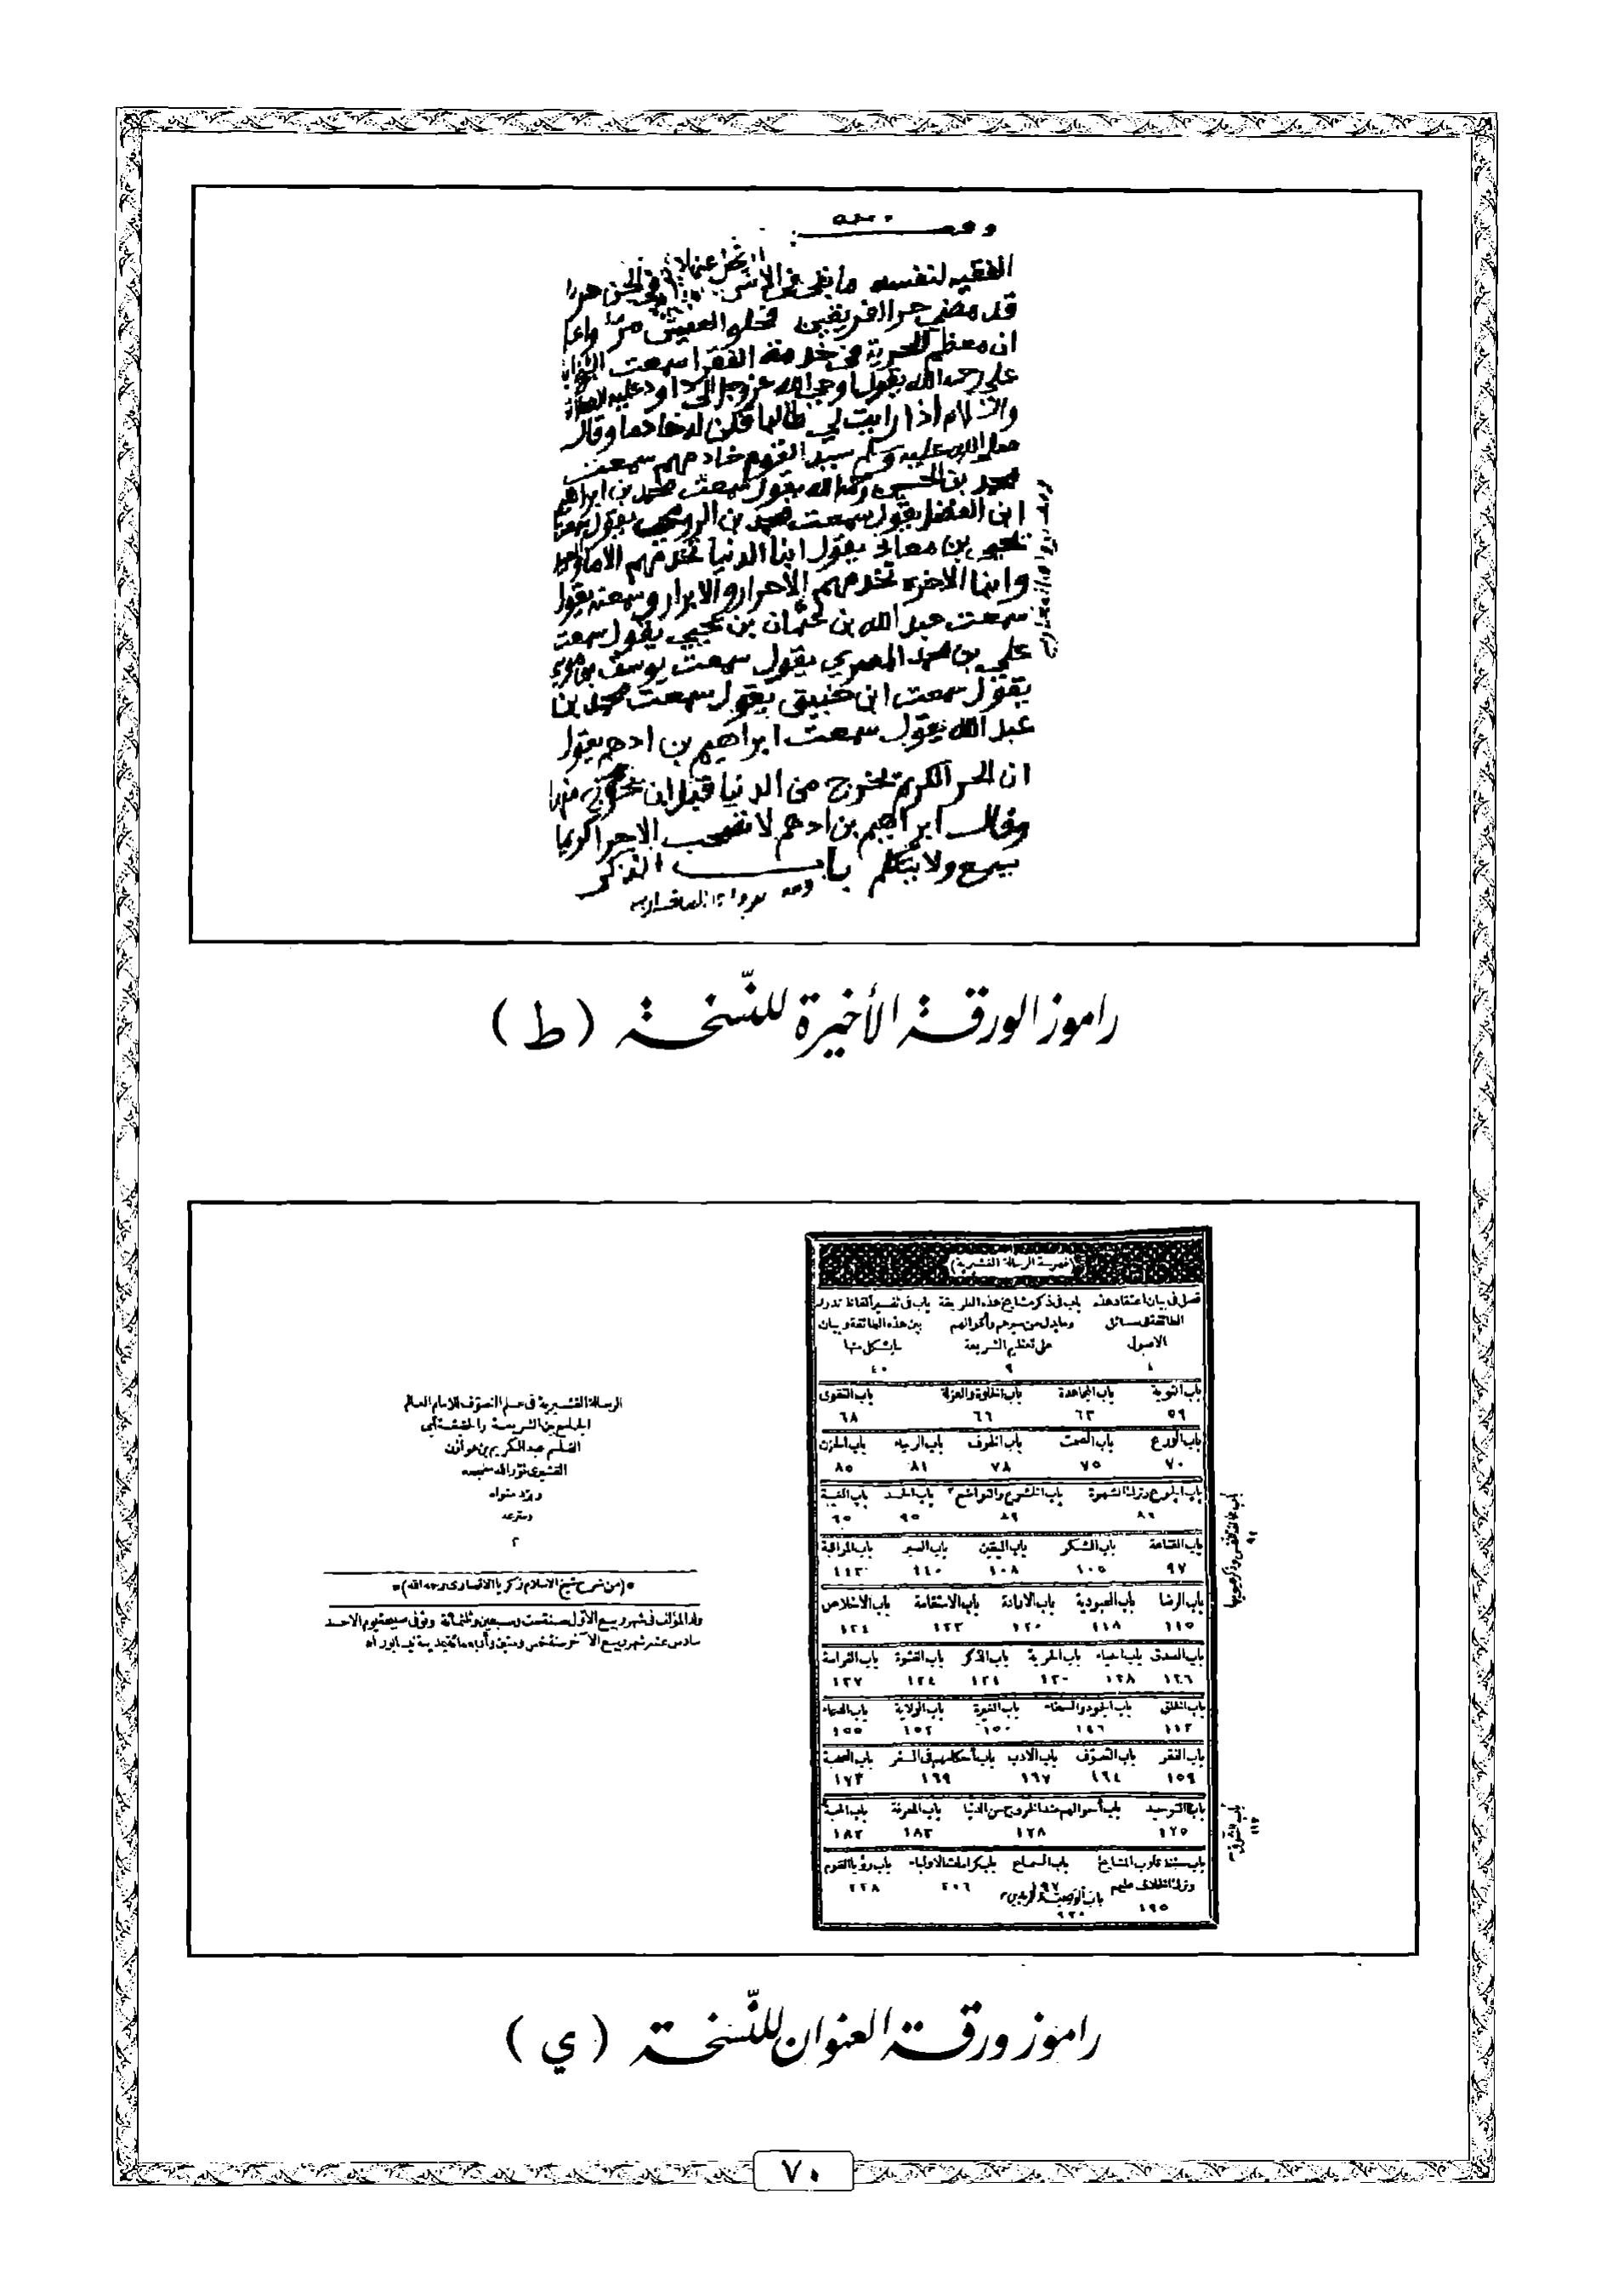 انا نحن عنها لا
الفقير لنفسه ما بقي في الانس في الجن حر
قد مضى حر الفريقين فحلو العيش مر واعلم
ان معظم الحرية في خدمة الفقرا سمعت
علي رحمه الله يقول اوحى الله عز وجل الى داود عليه الصلاة
والسلام اذا رايت لي طالبا فكن له خادما وقال
صلى الله عليه وسلم سيد القوم خادمهم سمعت
محمد بن الحسين رحمه الله يقول سمعت محمد بن ابراهيم
ابن الفضل يقول سمعت محمد بن الرومي يقول سمعت
يحيى بن معاذ يقول ابنا الدنيا تخدمهم الاما والعبيد
وابنا الاخرة تخدمهم الاحرار والابرار وسمعته يقول
سمعت عبد الله بن عثمان بن يحيى يقول سمعت
علي بن محمد المصري يقول سمعت يوسف بن موسى
يقول سمعت ابن خبيق يقول سمعت محمد بن
عبد الله يقول سمعت ابراهيم بن ادهم يقول
ان الحر الكريم يخرج من الدنيا قبل ان يخرج منها
وقال ابراهيم بن ادهم لا تصحب الا حرا كريما
يسمع ولا يتكلم باب الذكر
راموز الورقة الأخيرة للنّسخة (ط)
(فهرسة الرسالة القشيرية)
فصل في بيان اعتقاد هذه الطائفة في مسائل الاصول
باب في ذكر مشايخ هذه الطريقة وما يدل من سيرهم وأقوالهم على تعظيم الشريعة ٩
باب في تفسير ألفاظ تدور بين هذه الطائفة وبيان ما يشكل منها ٤٠
باب التوبة ٥٩ باب المجاهدة ٦٣ باب الخلوة والعزلة ٦٦ باب التقوى ٦٨
باب الورع ٧٠ باب الصمت ٧٥ باب الخوف ٧٨ باب الرجاء ٨١ باب الحزن ٨٥
باب الجوع وترك الشهوة ٨٦ باب الخشوع والتواضع ٨٩ باب الحسد ٩٥ باب الغيبة
باب القناعة ٩٧ باب الشكر ١٠٥ باب اليقين ١٠٨ باب الصبر ١١٠ باب المراقبة ١١٣
باب الرضا ١١٥ باب العبودية ١١٨ باب الارادة ١٢٠ باب الاستقامة ١٢٣ باب الاخلاص ١٢٤
باب الصدق ١٢٦ باب الحياء ١٢٨ باب الحرية ١٣٠ باب الذكر باب الفتوة ١٣٤ باب الفراسة ١٣٧
باب الخلق باب الجود والسخاء ١٤٦ باب الغيرة ١٥٠ باب الولاية ١٥٢ باب الدعاء ١٥٥
باب الفقر ١٥٩ باب التصوّف ١٦٤ باب الادب ١٦٧ باب أحكامهم في السفر ١٦٩ باب الصحبة ١٧٣
باب التوحيد ١٧٥ باب أحوالهم عند الخروج من الدنيا ١٧٨ باب المعرفة ١٨٣ باب المحبة
باب حفظ قلوب المشايخ وترك الخلاف عليهم ١٩٥ باب السماع ١٩٧ باب كرامات الاولياء ٢٠٦ باب رؤيا القوم ٢٢٨
باب الوصية للمريدين ٢٣٠
باب مخالفة النفس وذكر عيوبها
باب الشوق
الرسالة القشيرية في علم التصوّف للامام العالم
الجامع بين الشريعة والحقيقة أبي
القاسم عبد الكريم بن هوازن
القشيري نوّر الله ضريحه
وبرّد مثواه
٢
(من شرح شيخ الاسلام زكريا الانصاري رحمه الله)
ولد المؤلف في شهر ربيع الأوّل سنة ست وسبعين وثلثمائة وتوفي صبيحة يوم الاحد
سادس عشر شهر ربيع الآخر سنة خمس وستين وأربعمائة بمدينة نيسابور اه
راموز ورقة العنوان للنّسخة (ي)
٧٠